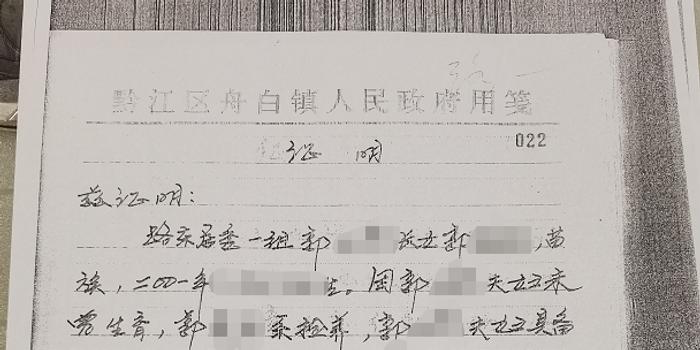 黔江区舟白镇人民政府用笺
022
证 明
兹证明:
路东居委一组郭 长女郭 ,苗
族,二00一年 生。因郭 夫妇未
曾生育,郭 系捡养,郭 夫妇具备